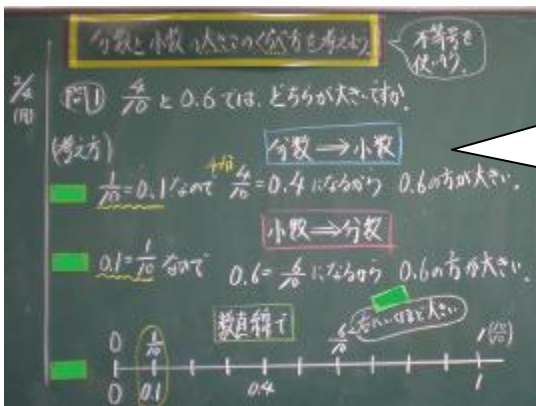 分数と小数の大きさのくらべ方を考えよう。
不等号を
使いう。
2/4
(月)
問1 4/10 と 0.6では、どちらが大きいですか。
(考え方)
分数⇒小数
1/10=0.1なので 4/10=0.4になるから 0.6の方が大きい。
小数⇒分数
0.1=1/10 なので 0.6=6/10になるから 0.6の方が大きい。
数直線で
右にいくほど大きい
0 1/10 6/10 1(10/10)
0 0.1 0.4 1